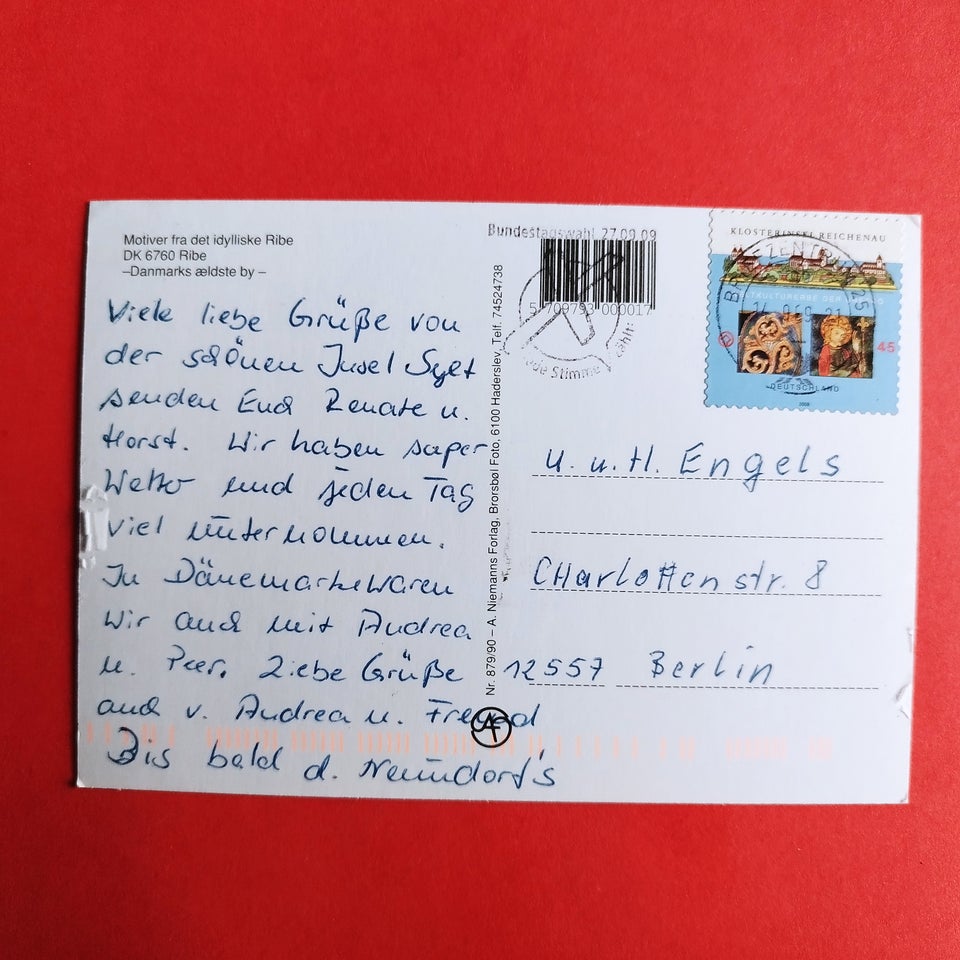 Motiver fra det idylliske Ribe
DK 6760 Ribe
–Danmarks ældste by –
Viele liebe Grüße von
der schönen Insel Sylt
senden Euch Renate u.
Horst. Wir haben super
Wetter und jeden Tag
viel unternommen.
In Dänemark waren
wir auch mit Andrea
u. Peer. Liebe Grüße
auch v. Andrea u.
Bis bald d. Neundorf's
Nr. 879/90 – A. Niemanns Forlag, Brorsbøl Foto, 6100 Haderslev, Telf. 74524738
Bundestagswahl 27.09.09
5 709793 000017
Jede Stimme zählt!
KLOSTERINSEL REICHENAU
WELTKULTURERBE DER UNESCO
45
DEUTSCHLAND
2008
BRIEFZENTRUM
U. u. H. Engels
CHarlottenstr. 8
12557 Berlin